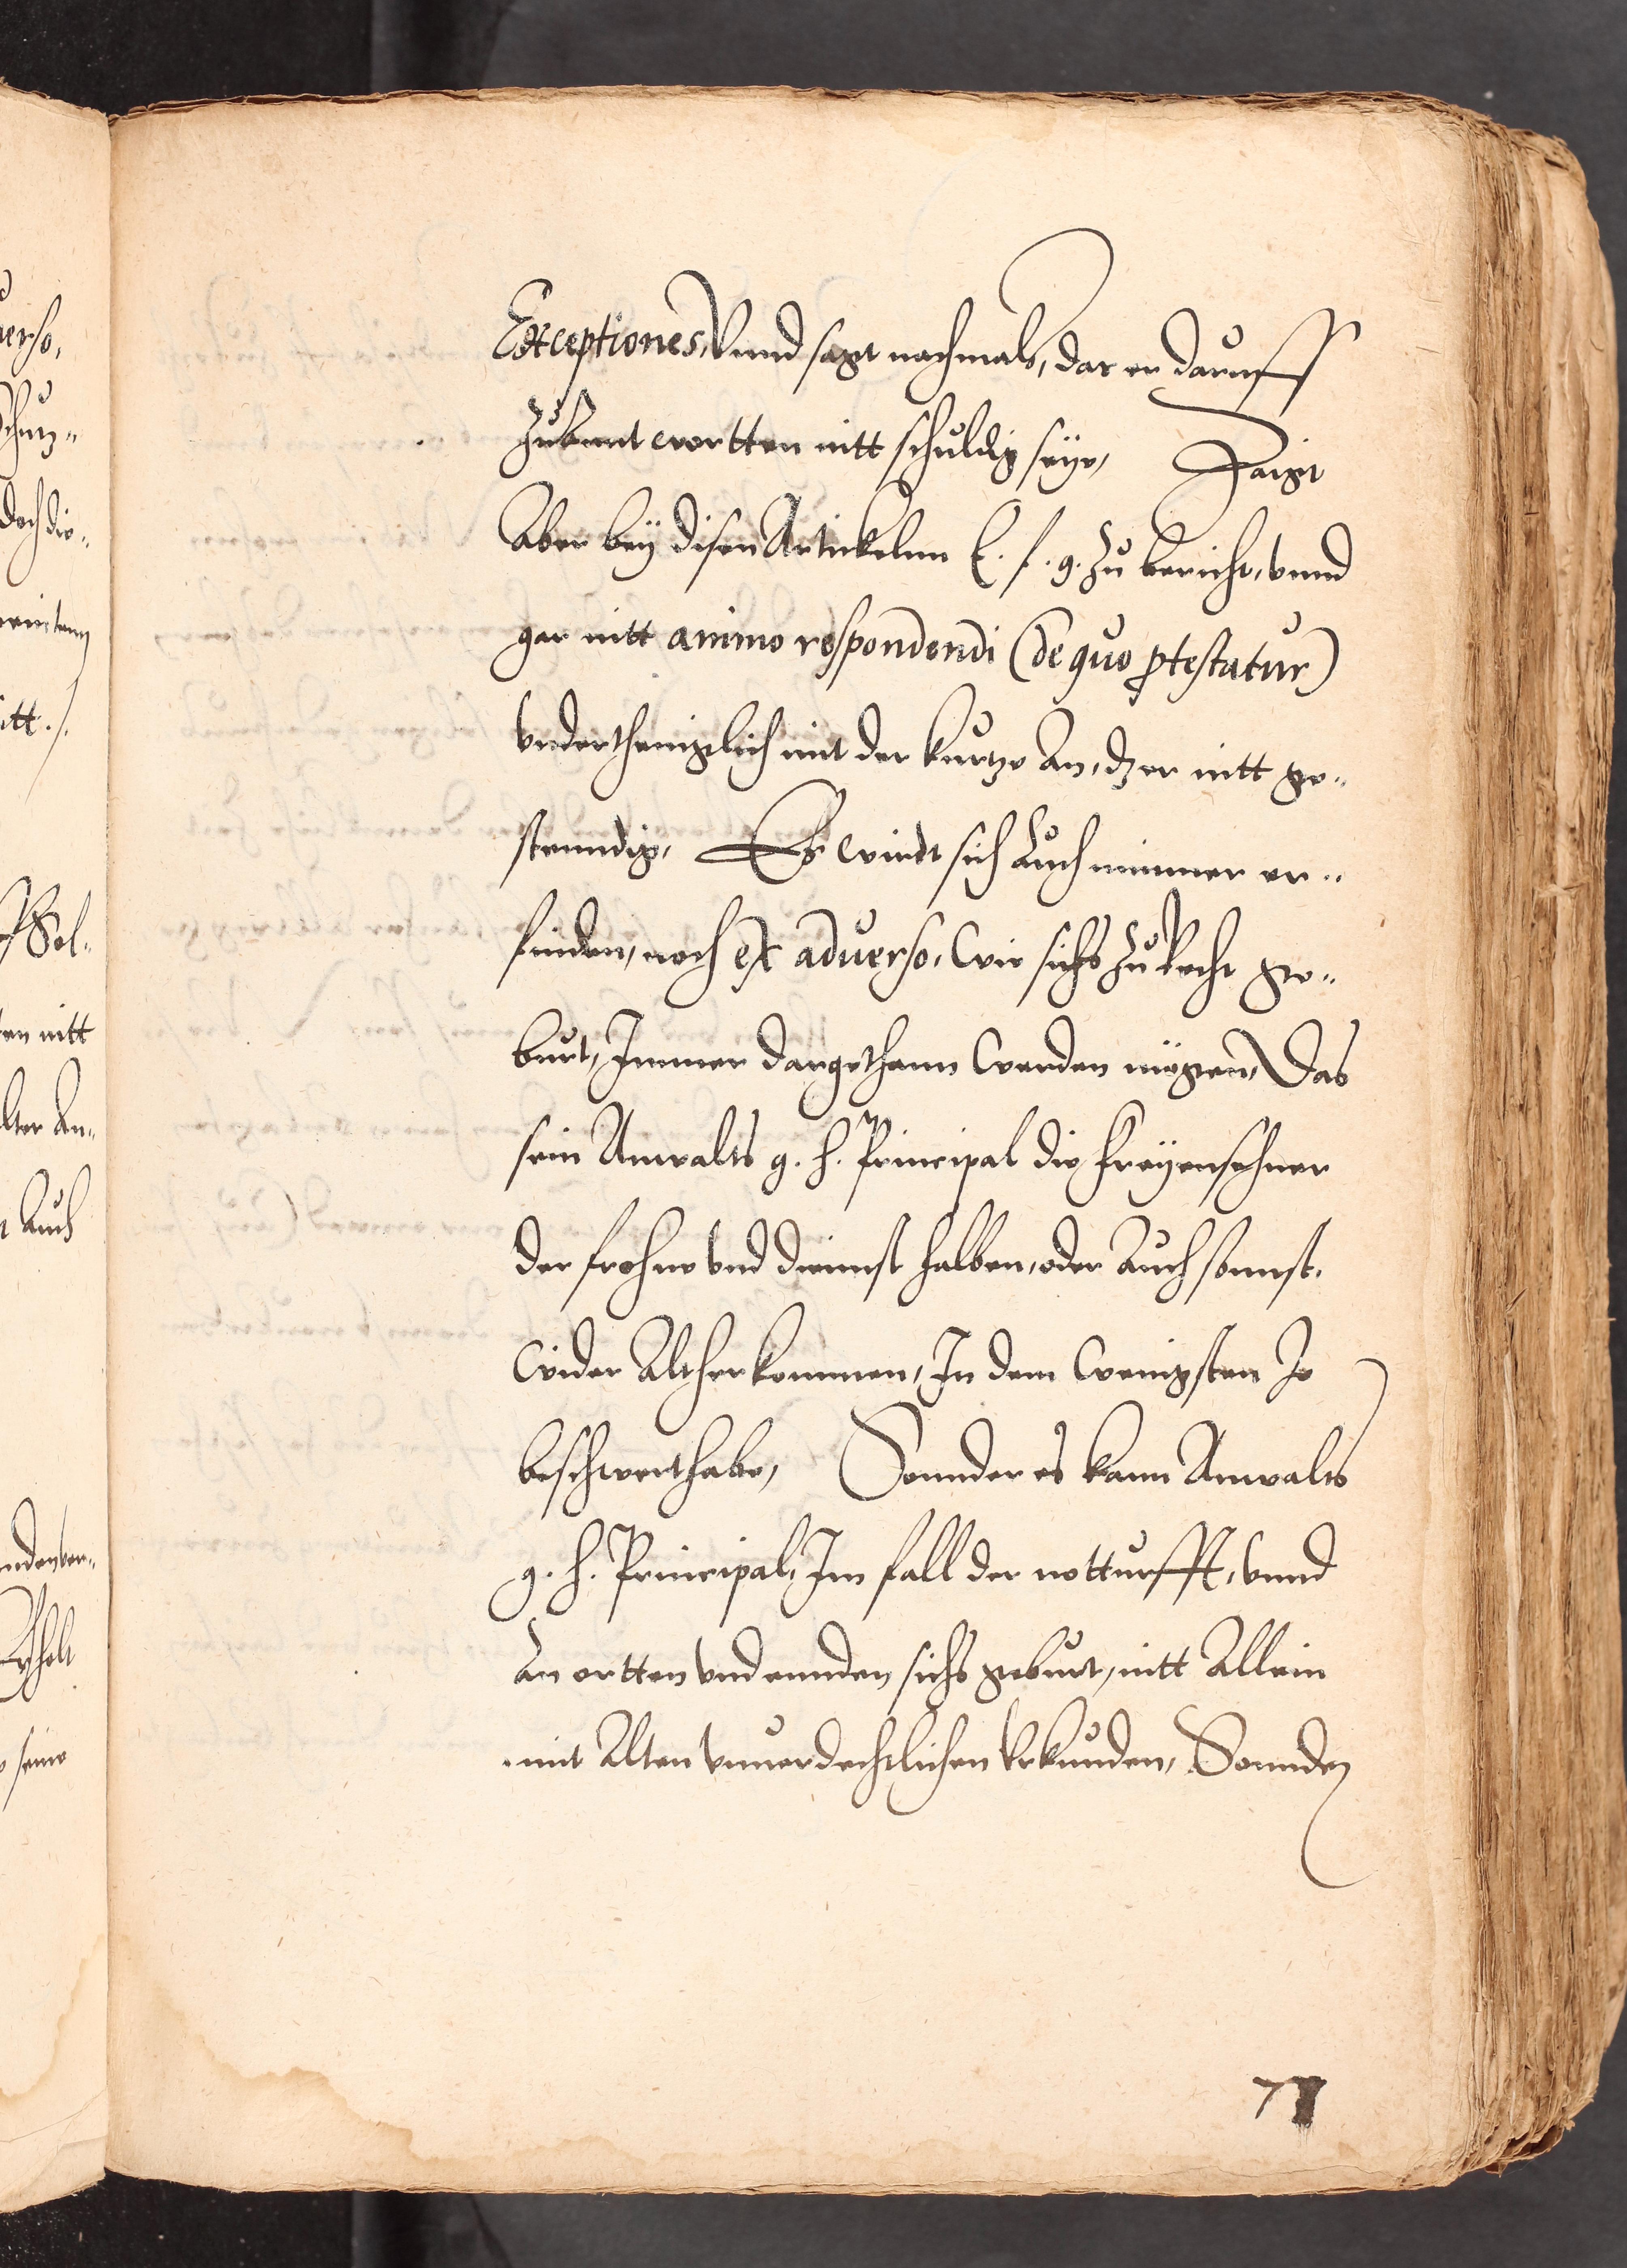 Exceptiones, Vnnd sagt nachmals, das er daruff
zubeantwortten nitt schuldig seye, Zaigt
Aber bey disen Artickelnn E. f. g. zu bericht, vnnd
gar nitt animo respondendi (de quo ptestatur)
vnderthenigelich mit der kurtze An, dz er nitt ge-
stenndig, Es wirdt sich Auch nimmer er-
finden, noch ex aduerso, wie sichs zu Recht ge-
burt, Immer dargethann werden mögen, Das
sein Anwalts g. h. Principal die
der frohne vnd diennst halben, oder Auch sonnst,
wider Altherkommen, In dem wenigsten Je
beschwert habe, Sonnder es kann Anwalts
g. h. Principal, Im fall der notturfft, vnnd
An ortten vnd ennden sichs geburt, nitt Allein
mit Alten vnuerdechtlichen Vrkunden, Sonnder
71